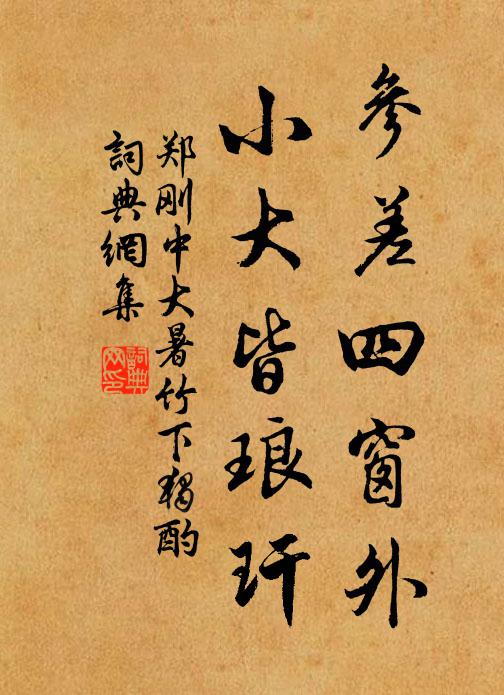 參差四窗外
小大皆琅玕
郑刚中大暑竹下独酌
詞典網集
詞典網印